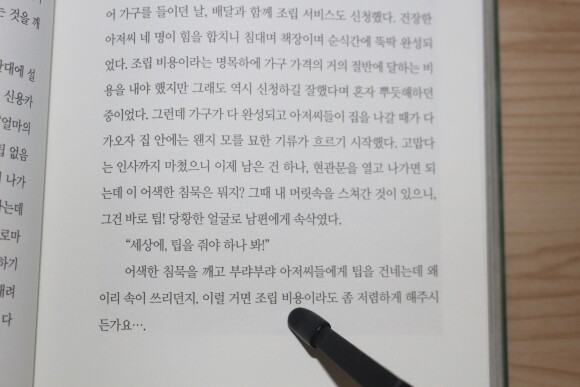 는 것을 깨
한대에 설
신용카
얼마의
팁 없음
나가
하는데
로마
하기
내려
다
어 가구를 들이던 날, 배달과 함께 조립 서비스도 신청했다. 건장한
아저씨 네 명이 힘을 합치니 침대며 책장이며 순식간에 뚝딱 완성되
었다. 조립 비용이라는 명목하에 가구 가격의 거의 절반에 달하는 비
용을 내야 했지만 그래도 역시 신청하길 잘했다며 혼자 뿌듯해하던
중이었다. 그런데 가구가 다 완성되고 아저씨들이 집을 나갈 때가 다
가오자 집 안에는 왠지 모를 묘한 기류가 흐르기 시작했다. 고맙다
는 인사까지 마쳤으니 이제 남은 건 하나, 현관문을 열고 나가면 되
는데 이 어색한 침묵은 뭐지? 그때 내 머릿속을 스쳐간 것이 있으니,
그건 바로 팁! 당황한 얼굴로 남편에게 속삭였다.
“세상에, 팁을 줘야 하나 봐!”
어색한 침묵을 깨고 부랴부랴 아저씨들에게 팁을 건네는데 왜
이리 속이 쓰리던지. 이럴 거면 조립 비용이라도 좀 저렴하게 해주시
든가요….